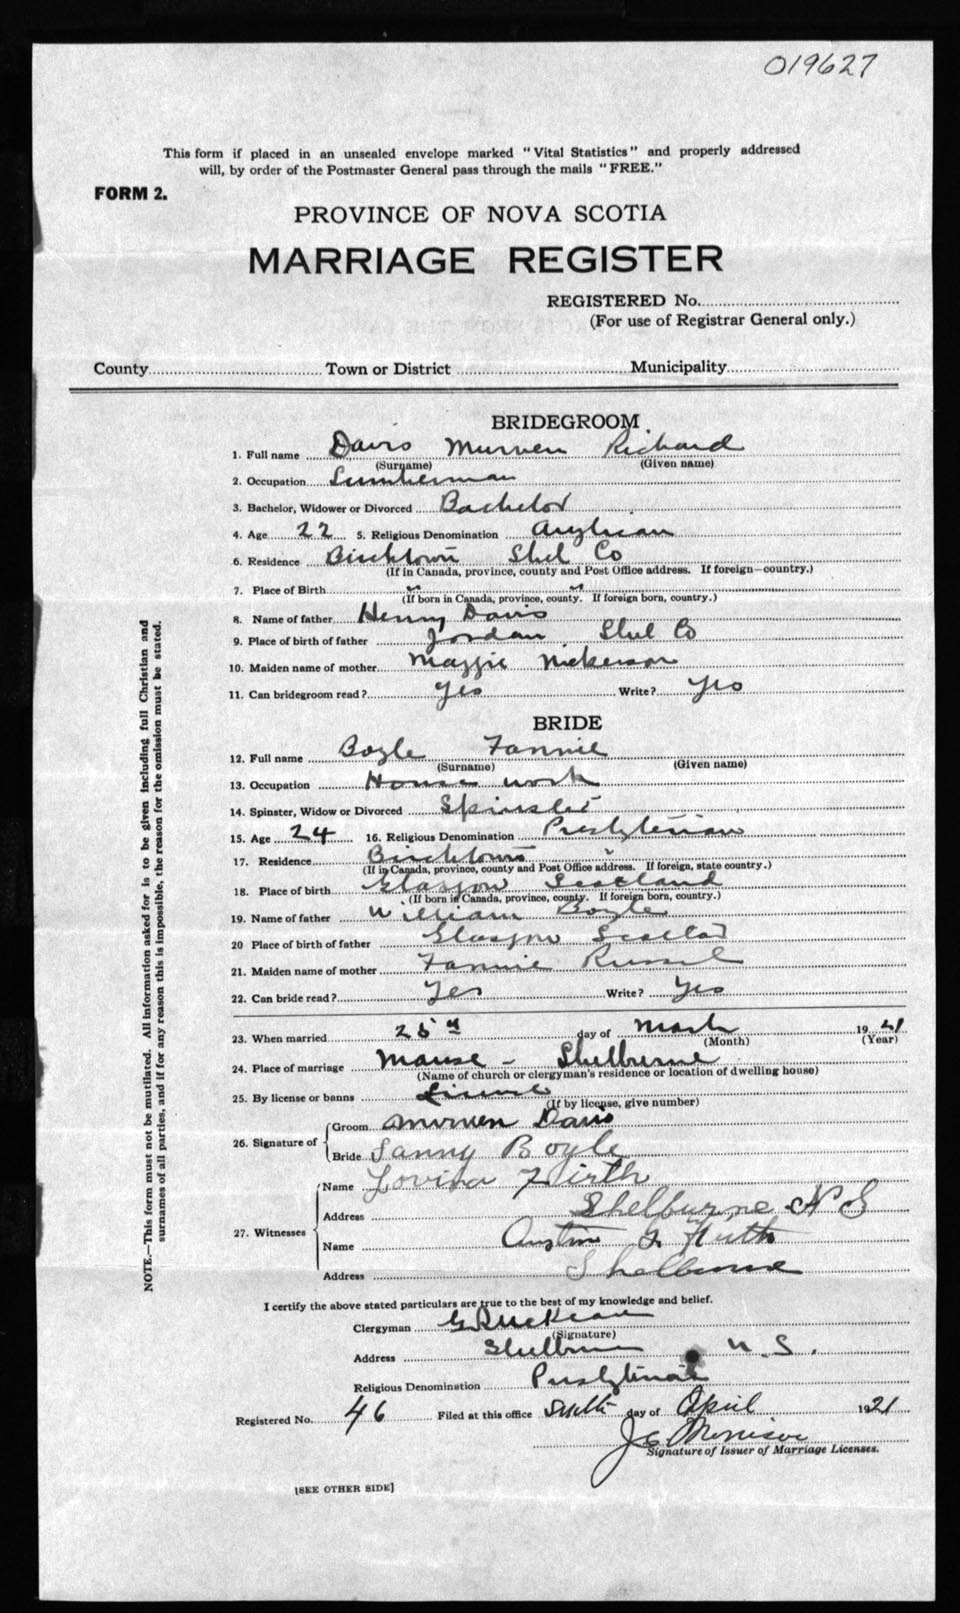 019627
This form if placed in an unsealed envelope marked "Vital Statistics" and properly addressed
will, by order of the Postmaster General pass through the mails "FREE."
FORM 2.
PROVINCE OF NOVA SCOTIA
MARRIAGE REGISTER
REGISTERED No.
(For use of Registrar General only.)
County Town or District Municipality
BRIDEGROOM
1. Full name Davis Murven Richard
(Surname) (Given name)
2. Occupation Lumberman
3. Bachelor, Widower or Divorced Bachelor
4. Age 22 5. Religious Denomination Anglican
6. Residence Birchtown Shel Co
(If in Canada, province, county and Post Office address. If foreign—country.)
7. Place of Birth " "
(If born in Canada, province, county. If foreign born, country.)
8. Name of father Henry Davis
9. Place of birth of father Jordan Shel Co
10. Maiden name of mother Maggie Nickerson
11. Can bridegroom read? Yes Write? Yes
BRIDE
12. Full name Boyle Fannie
(Surname) (Given name)
13. Occupation House work
14. Spinster, Widow or Divorced Spinster
15. Age 24 16. Religious Denomination Presbyterian
17. Residence Birchtown "
(If in Canada, province, county and Post Office address. If foreign, state country.)
18. Place of birth Glasgow Scotland
(If born in Canada, province, county. If foreign born, country.)
19. Name of father William Boyle
20 Place of birth of father Glasgow Scotland
21. Maiden name of mother Fannie Russel
22. Can bride read? Yes Write? Yes
23. When married day of March 1921
(Month) (Year)
24. Place of marriage Manse - Shelburne
(Name of church or clergyman's residence or location of dwelling house)
25. By license or banns License
(If by license, give number)
26. Signature of Groom Murven Davis
Bride Fanny Boyle
27. Witnesses Name Lovina Firth
Address Shelburne N S
Name Austin G. Firth
Address Shelburne
I certify the above stated particulars are true to the best of my knowledge and belief.
Clergyman
(Signature)
Address Shelburne N.S.
Religious Denomination Presbyterian
Registered No. 46 Filed at this office day of April 1921
Morrison
Signature of Issuer of Marriage Licenses.
[SEE OTHER SIDE]
NOTE.—This form must not be mutilated. All information asked for is to be given including full Christian and
surnames of all parties, and if for any reason this is impossible, the reason for the omission must be stated.